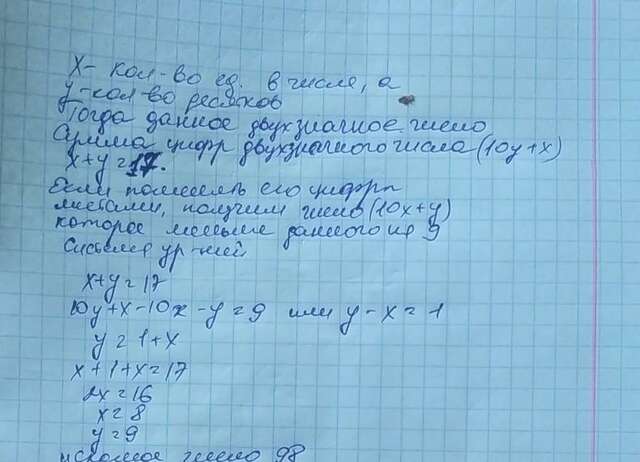 x - кол-во ед. в числе, а
y - кол-во десятков
Тогда данное двухзначное число
Сумма цифр двухзначного числа (10y+x)
x+y=17.
Если поменять его цифры
местами, получим число (10x+y)
которое меньше данного на 9
Система ур-ний
x+y=17
10y+x-10x-y=9 или y-x=1
y=1+x
x+1+x=17
2x=16
x=8
y=9
искомое число 98